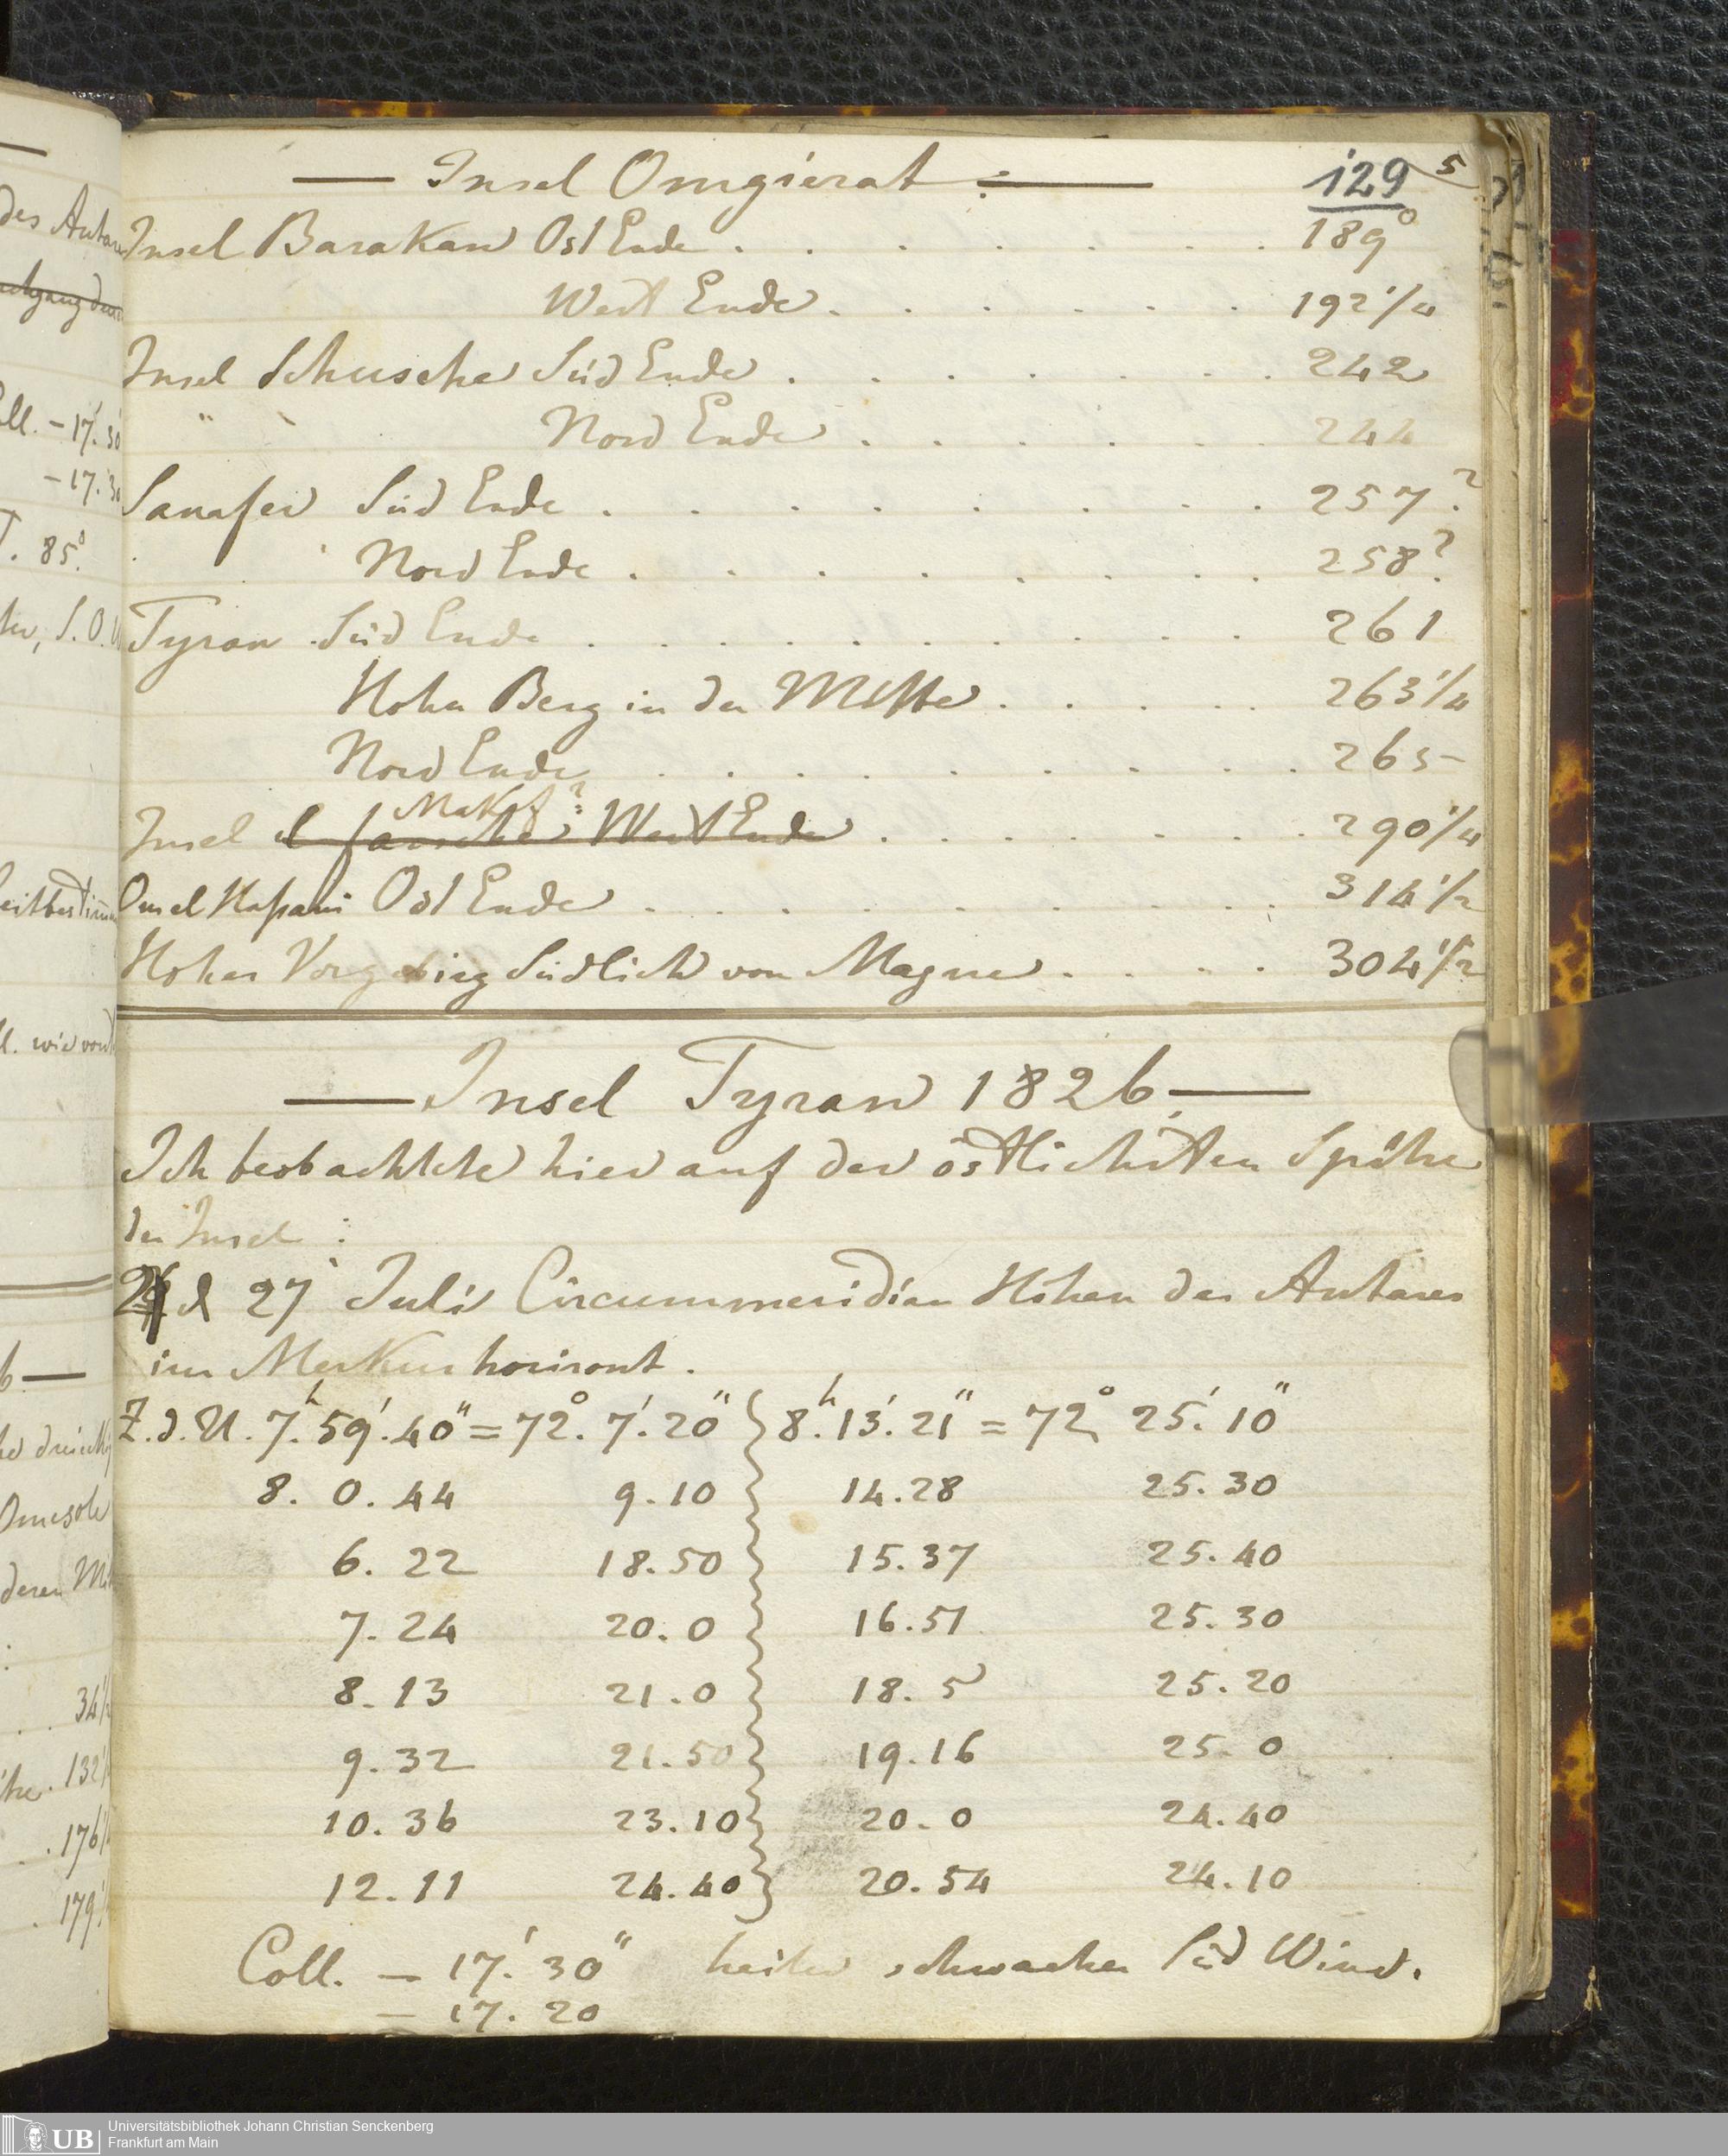 — Insel Omgierat : — 129 5
Insel Barakan Ost Ende . . . . . . . 189°
West Ende . . . . . . 192 1/4
Insel Schusche Süd Ende . . . . . . . 242
" Nord Ende . . . . . . 244
Sanafer Süd Ende . . . . . . . . 257?
Nord Ende . . . . . . . . 258?
Tyran Süd Ende . . . . . . . . 261
Hoher Berg in der Mitte . . . . . 263 1/4
Nord Ende . . . . . . . . 265
Makß?
Insel West Ende . . . . . . . 290 1/4
Omel Haßani Ost Ende . . . . . . . . 314 1/2
Hohes Vorgebirg Südlich von Magne . . . . 304 1/2
— Insel Tyran 1826. —
Ich beobachtete hier auf der östlichsten Spitze
der Insel :
d 27 Juli Circummeridian Höhen des Antares
im Merkur horizont.
Z.d.U. 7.h 59.' 40" = 72°. 7.' 20" } 8.h 13.' 21" = 72° 25.' 10"
8. 0. 44 9.10 14.28 25.30
6. 22 18.50 15.37 25.40
7. 24 20. 0 16.51 25.30
8. 13 21. 0 18. 5 25.20
9. 32 21.50 19.16 25. 0
10. 36 23.10 20. 0 24.40
12. 11 24.40 20.54 24.10
Coll. — 17.' 30" heiter schwacher Süd Wind.
— 17. 20
des Antar
Coll. – 17.' 30
– 17. 30
T. 85°.
34 1/2
132
. 176
. 179
UB Universitätsbibliothek Johann Christian Senckenberg
Frankfurt am Main